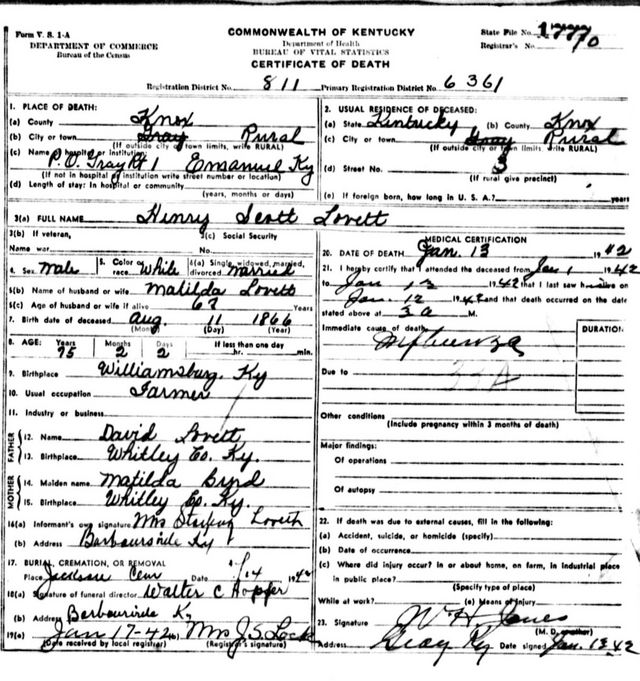 Form V. S. 1-A
DEPARTMENT OF COMMERCE
Bureau of the Census
COMMONWEALTH OF KENTUCKY
Department of Health
BUREAU OF VITAL STATISTICS
CERTIFICATE OF DEATH
State File No. 1770
Registrar's No.
Registration District No. 811 Primary Registration District No. 6361
1. PLACE OF DEATH:
(a) County Knox
(b) City or town Gray Rural
(If outside city or town limits, write RURAL)
(c) Name of hospital or institution:
P.O. Gray Rt 1 Emanuel Ky
(If not in hospital or institution write street number or location)
(d) Length of stay: In hospital or community
(years, months or days)
2. USUAL RESIDENCE OF DECEASED:
(a) State Kentucky (b) County Knox
(c) City or town Gray Rural
(If outside city or town limits, write RURAL)
(d) Street No. 3
(If rural give precinct)
(e) If foreign born, how long in U. S. A.? years
3(a) FULL NAME Henry Scott Lovett
3(b) If veteran,
Name war
3(c) Social Security
No.
4. Sex Male 5. Color or race White 6(a) Single, widowed, married, divorced Married
6(b) Name of husband or wife Matilda Lovett
6(c) Age of husband or wife if alive 67 Years
7. Birth date of deceased Aug 11 1866
(Month) (Day) (Year)
8. AGE: Years Months Days If less than one day
75 2 2 hr. min.
9. Birthplace Williamsburg, Ky
10. Usual occupation Farmer
11. Industry or business
FATHER
12. Name David Lovett
13. Birthplace Whitley Co. Ky.
MOTHER
14. Maiden name Matilda Byrd
15. Birthplace Whitley Co. Ky.
16(a) Informant's own signature Mrs Sterling Lovett
(b) Address Barbourville Ky
17. BURIAL, CREMATION, OR REMOVAL
Place Jackson Cem Date 1-14 1942
18(a) Signature of funeral director Walter C Hopper
(b) Address Barbourville Ky
19(a) Jan 17-42 (b) Mrs J.S. Lock
(Date received by local registrar) (Registrar's signature)
MEDICAL CERTIFICATION
20. DATE OF DEATH Jan. 13 1942
21. I hereby certify that I attended the deceased from Jan 1 1942
to Jan 13 1942 that I last saw h alive on
Jan. 12 1942 and that death occurred on the date
stated above at 3 a M.
Immediate cause of death DURATION
Influenza
Due to 33A
Other conditions
(Include pregnancy within 3 months of death)
Major findings:
Of operations
Of autopsy
22. If death was due to external causes, fill in the following:
(a) Accident, suicide, or homicide (specify)
(b) Date of occurrence
(c) Where did injury occur? In or about home, on farm, in industrial place
in public place?
(Specify type of place)
While at work? (e) Means of injury
23. Signature W H Jones
(M. D. or other)
Address Gray Ky Date signed Jan. 13 42